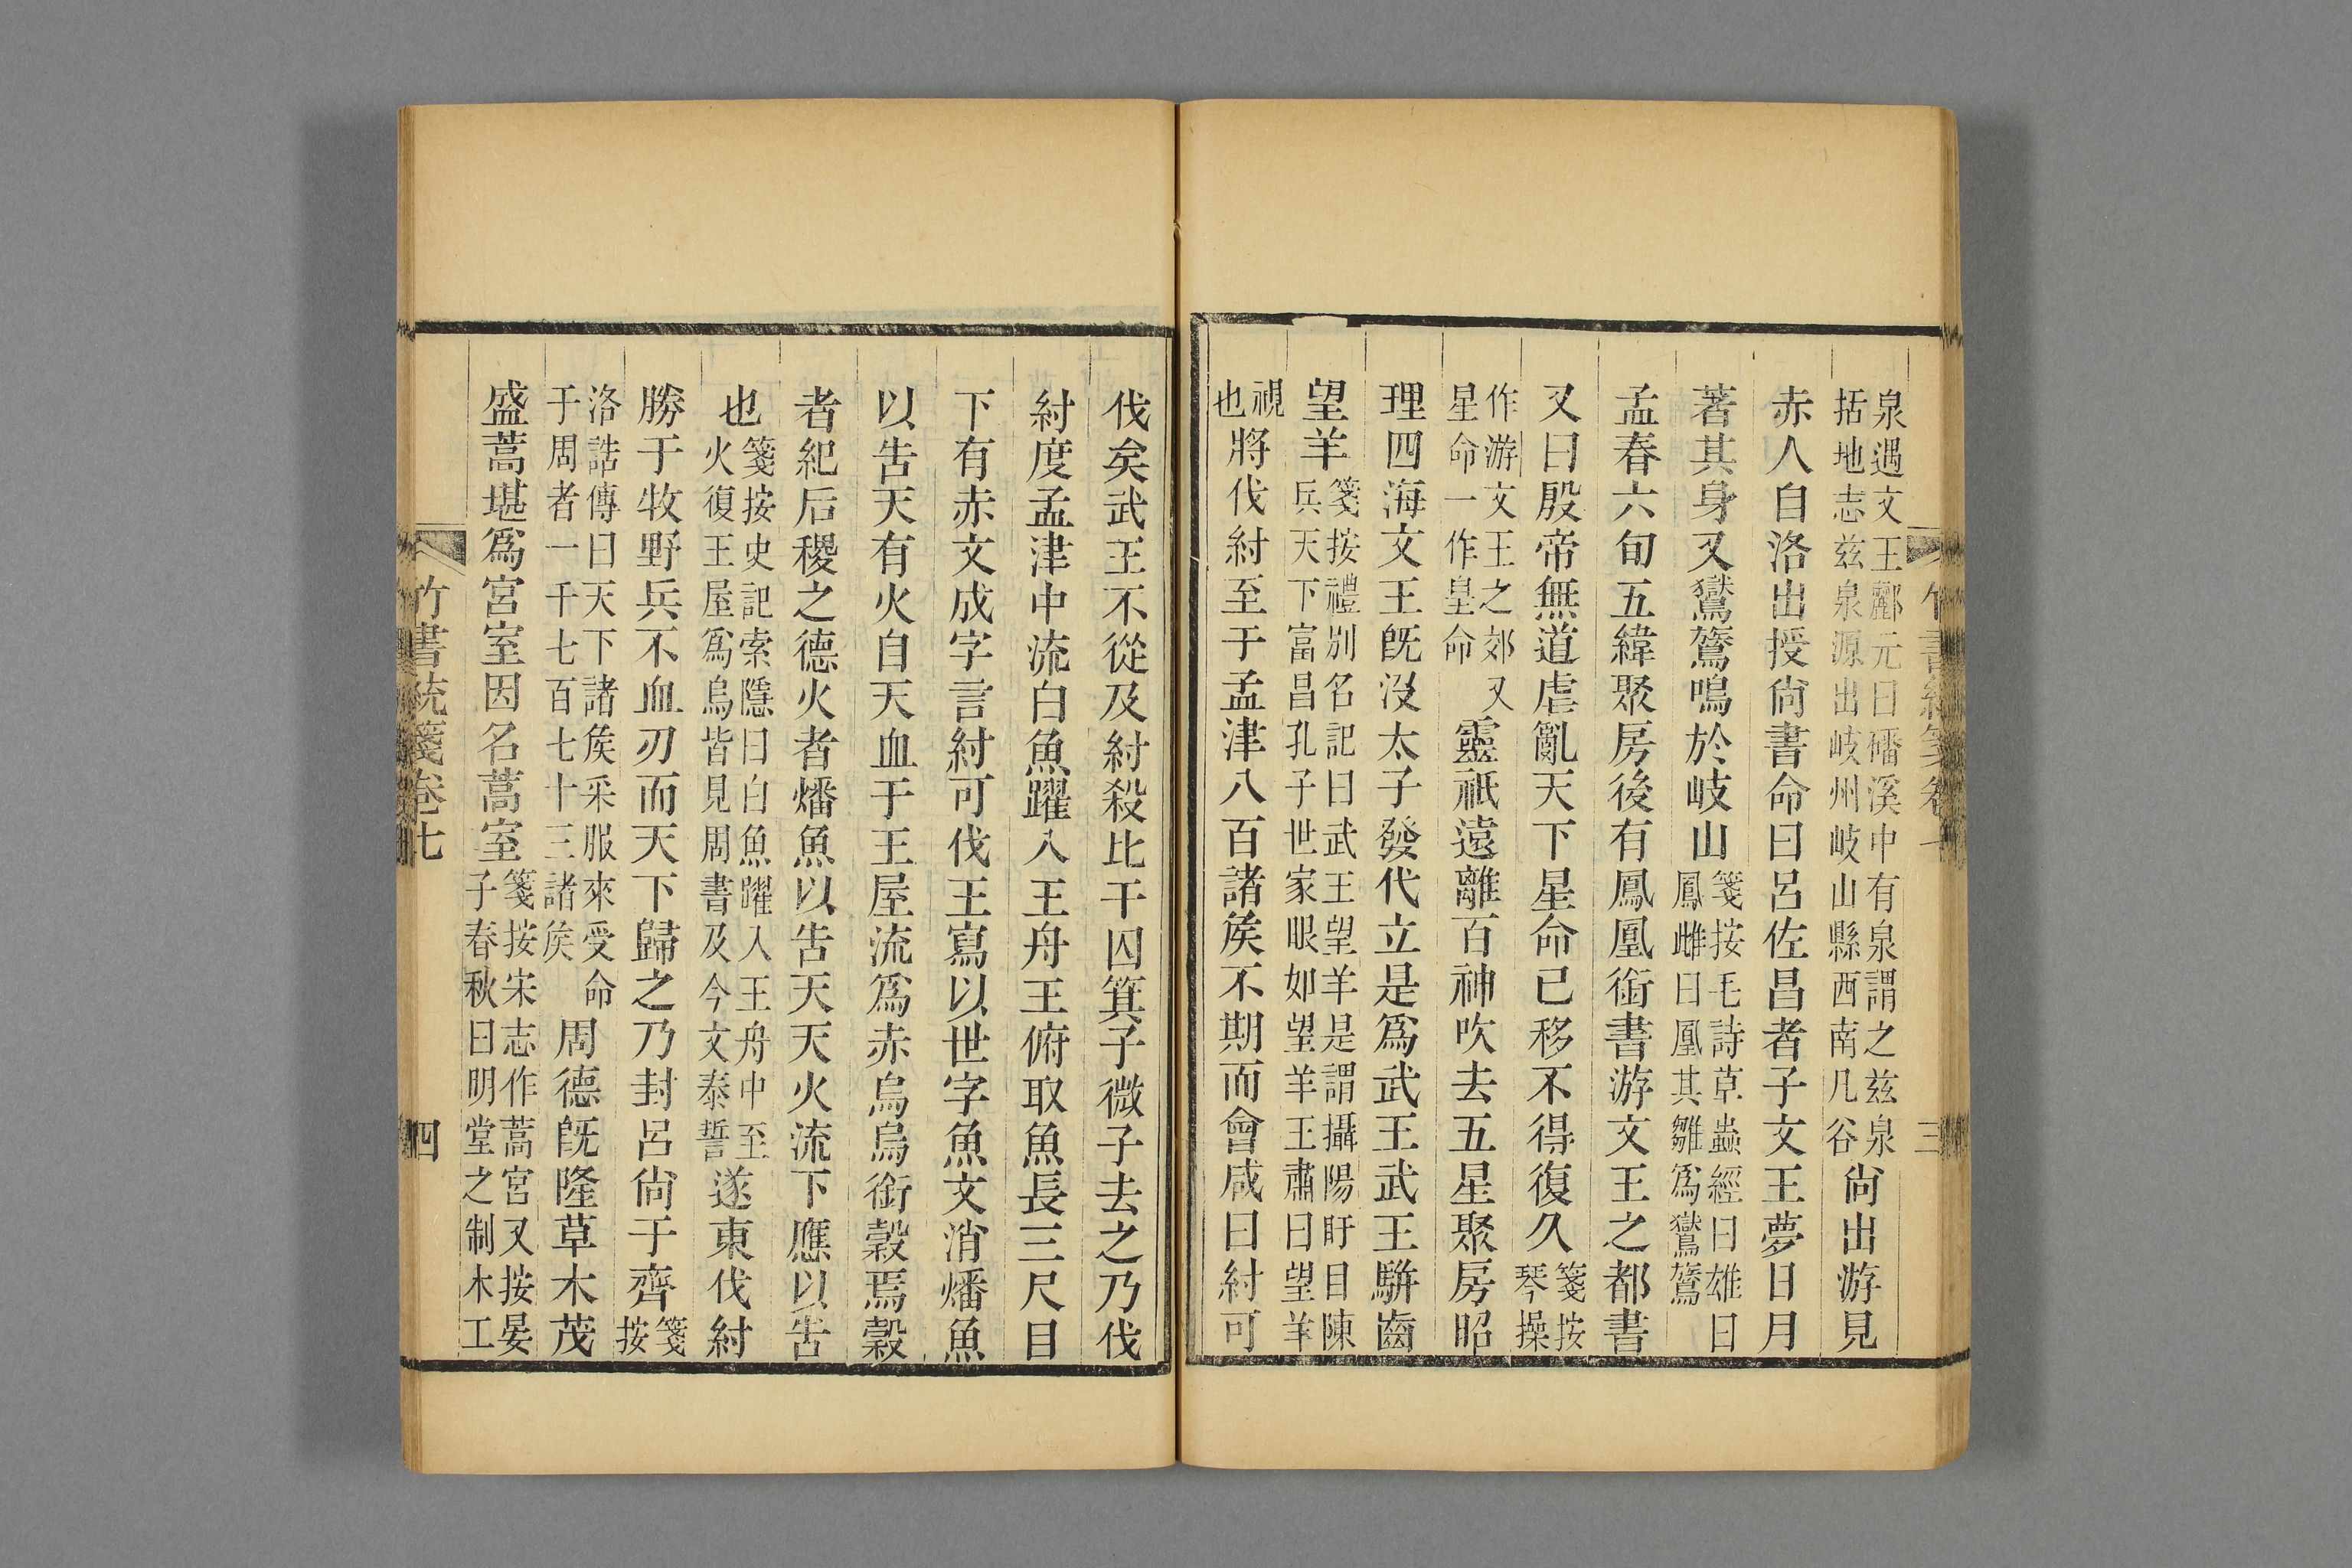 泉遇文王酈元曰磻溪中有泉謂之玆泉
括地志玆泉源出岐州岐山縣西南凡谷尙出游見
赤人自洛出授尙書命曰呂佐昌者子文王夢日月
著其身又鸑鷟鳴於岐山箋按毛詩草蟲經曰雄曰
鳳雌曰凰其雛爲鸑鷟
孟春六旬五緯聚房後有鳳凰銜書游文王之都書
又曰殷帝無道虐亂天下星命已移不得復久箋按
琴操
作游文王之郊又
星命一作皇命靈祇遠離百神吹去五星聚房昭
理四海文王旣沒太子發代立是爲武王武王騈齒
望羊箋按禮別名記曰武王望羊是謂攝陽盱目陳
兵天下富昌孔子世家眼如望羊王肅曰望羊
視
也將伐紂至于孟津八百諸矦不期而會咸曰紂可
伐矣武王不從及紂殺比干囚箕子微子去之乃伐
紂度孟津中流白魚躍入王舟王俯取魚長三尺目
下有赤文成字言紂可伐王寫以世字魚文消燔魚
以告天有火自天血于王屋流爲赤烏烏銜穀焉穀
者紀后稷之德火者燔魚以告天天火流下應以告
也箋按史記索隱曰白魚躍入王舟中至
火復王屋爲烏皆見周書及今文泰誓遂東伐紂
勝于牧野兵不血刃而天下歸之乃封呂尙于齊箋
按
洛誥傳曰天下諸矦采服來受命
于周者一千七百七十三諸矦周德旣隆草木茂
盛蒿堪爲宮室因名蒿室箋按宋志作蒿宮又按晏
子春秋曰明堂之制木工
竹書統箋卷七
四